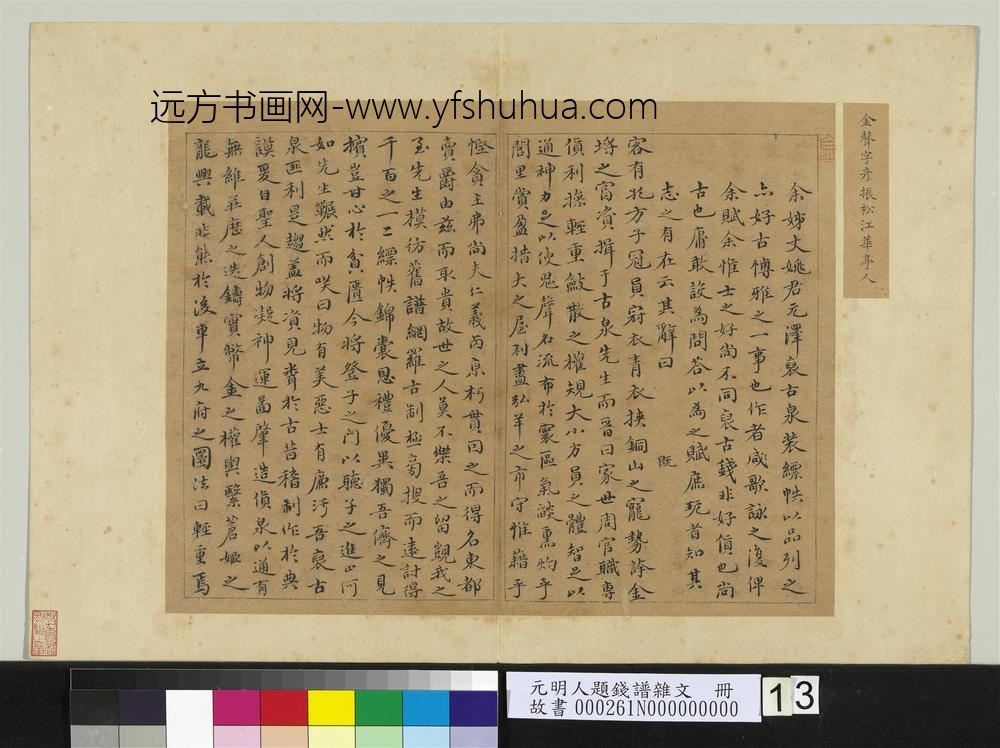 远方书画网-www.yfshuhua.com
金聲字彦振松江華亭人
余姊丈姚君元澤裒古泉裝縹帙以品列之
亦好古博雅之一事也作者咸歌詠之復俾
余賦余惟士之好尚不同裒古錢非好貨也尚
古也庸敢設為問答以為之賦庶玩者知其
志之有在云其辭曰 既
客有孔方子冠員冠衣青衣挾銅山之寵勢誇金
埒之富資揖于古泉先生而晉曰家世周官職專
貨利操輕重斂散之權規大小方員之體智足以
通神力足以使鬼聲名流布於寰區氣燄熏灼乎
閭里賞盈措大之屋利盡弘羊之市守惟藉乎
慳貪主弗尚夫仁義內京朽貫因之而得名東都
賣爵由茲而取貴故世之人莫不樂吾之留觀我之
至先生模彷舊譜網羅古制極旁搜而遠討得
千百之一二縹帙錦囊恩禮優異獨吾儕之見
擯豈甘心於貧匱今將登子之門以聽子之進止何
如先生囅然而咲曰物有美惡士有廉污吾裒古
泉匪利是趨蓋將資見於古昔稽制作於典
謨爰自聖人創物凝神運啚肇造貨泉以通有
無維之迭鑄實幣金之權輿繄蒼姬之
龍興載非熊於後車立九府之圜法曰輕重焉
元明人題錢譜雜文 冊
故書000261N000000000
13